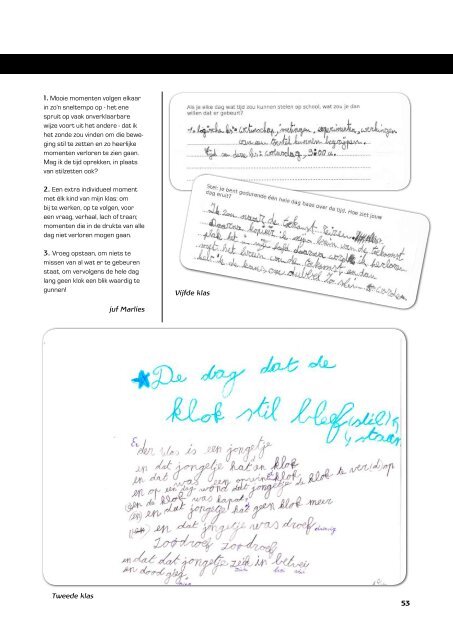 1. Mooie momenten volgen elkaar
in zo'n sneltempo op - het ene
spruit op vaak onverklaarbare
wijze voort uit het andere - dat ik
het zonde zou vinden om die bewe-
ging stil te zetten en zo heerlijke
momenten verloren te zien gaan.
Mag ik de tijd oprekken, in plaats
van stilzetten ook?
2. Een extra individueel moment
met élk kind van mijn klas: om
bij te werken, op te volgen, voor
een vraag, verhaal, lach of traan;
momenten die in de drukte van alle
dag niet verloren mogen gaan.
3. Vroeg opstaan, om niets te
missen van al wat er te gebeuren
staat, om vervolgens de hele dag
lang geen klok een blik waardig te
gunnen!
juf Marlies
Als je elke dag wat tijd zou kunnen stelen op school, wat zou je dan
willen dat er gebeurt?
wetenschap, metingen, experimenten, werkingen
kunnen begrijpen.
woensdag, 9:00 u.
Stel: je bent gedurende één hele dag baas over de tijd. Hoe ziet jouw
dag eruit?
Ik zou naar de toekomst reizen
Daarna kopiëer ik mijn brein van de toekomst
plak het in
het brein van de toekomst en dan
heb ik de kans om dubbel zo slim te worden
Vijfde klas
De dag dat de
klok stil bleef (stil)
staan
Er
der was is een jongetje
en dat jongetje had een klok
en dat was een klok
en op een dag dat jongetje klok
en de klok was kapot
en dat jongetje had geen klok meer
en dat jongetje was droef
zoodroef zoodroef
en dat dat jongetje zelk in
en dood gieg
Tweede klas
53